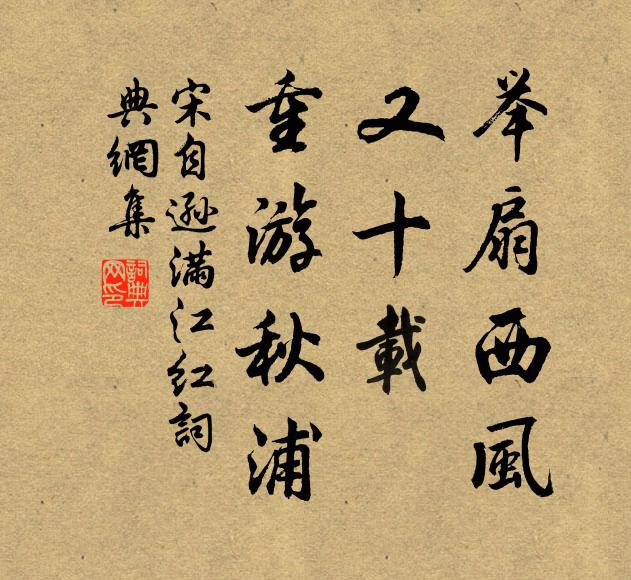 举扇西風
又十載
重游秋浦
宋自遜满江红詞
典網集
詞典网印